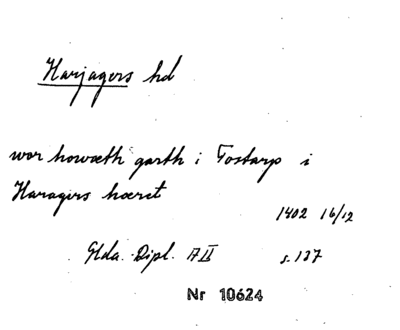 Harjagers hd
wor howæth garth i Tostarp i
Haragers hæret
1402 16/12
Glda. Dipl. A II s. 137
Nr 10624